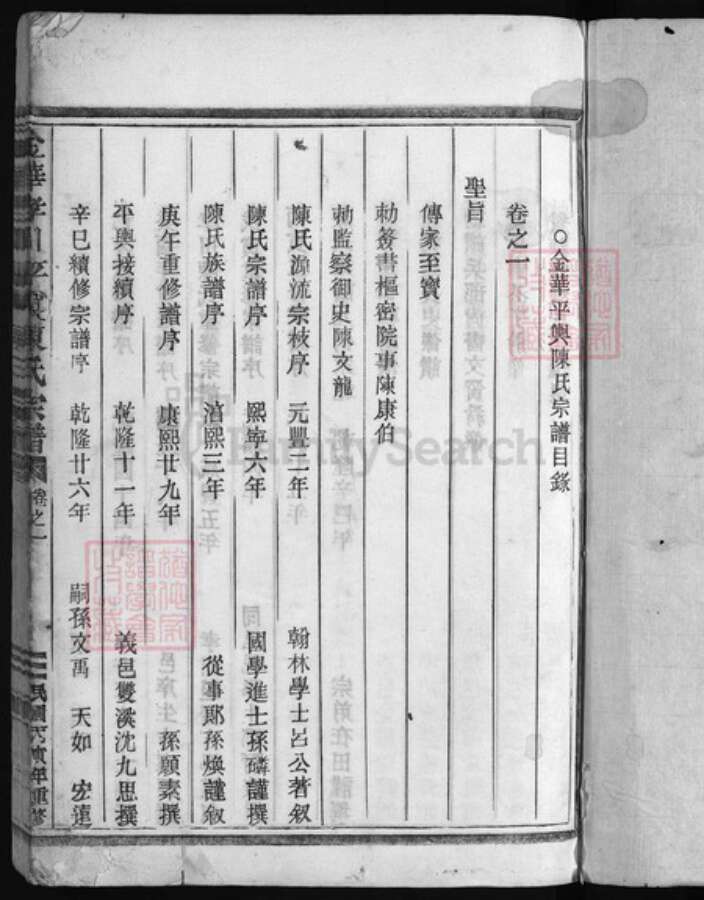 ○金華平輿陳氏宗譜目錄
卷之一
聖旨
傳家至寶
勅簽書樞密院事陳康伯
勅監察御史陳文龍
陳氏源流宗枝序 元豐二年 翰林學士呂公著叙
陳氏宗譜序 熙寧六年 國學進士孫磷謹撰
陳氏族譜序 淳熙三年 從事郎孫煥謹叙
庚午重修譜序 康熙廿九年 孫願素撰
平輿接續序 乾隆十一年 義邑雙溪沈九思撰
辛巳續修宗譜序 乾隆廿六年 嗣孫文禹 天如 宏遠
陳氏宗譜 卷之一
FamilySearch